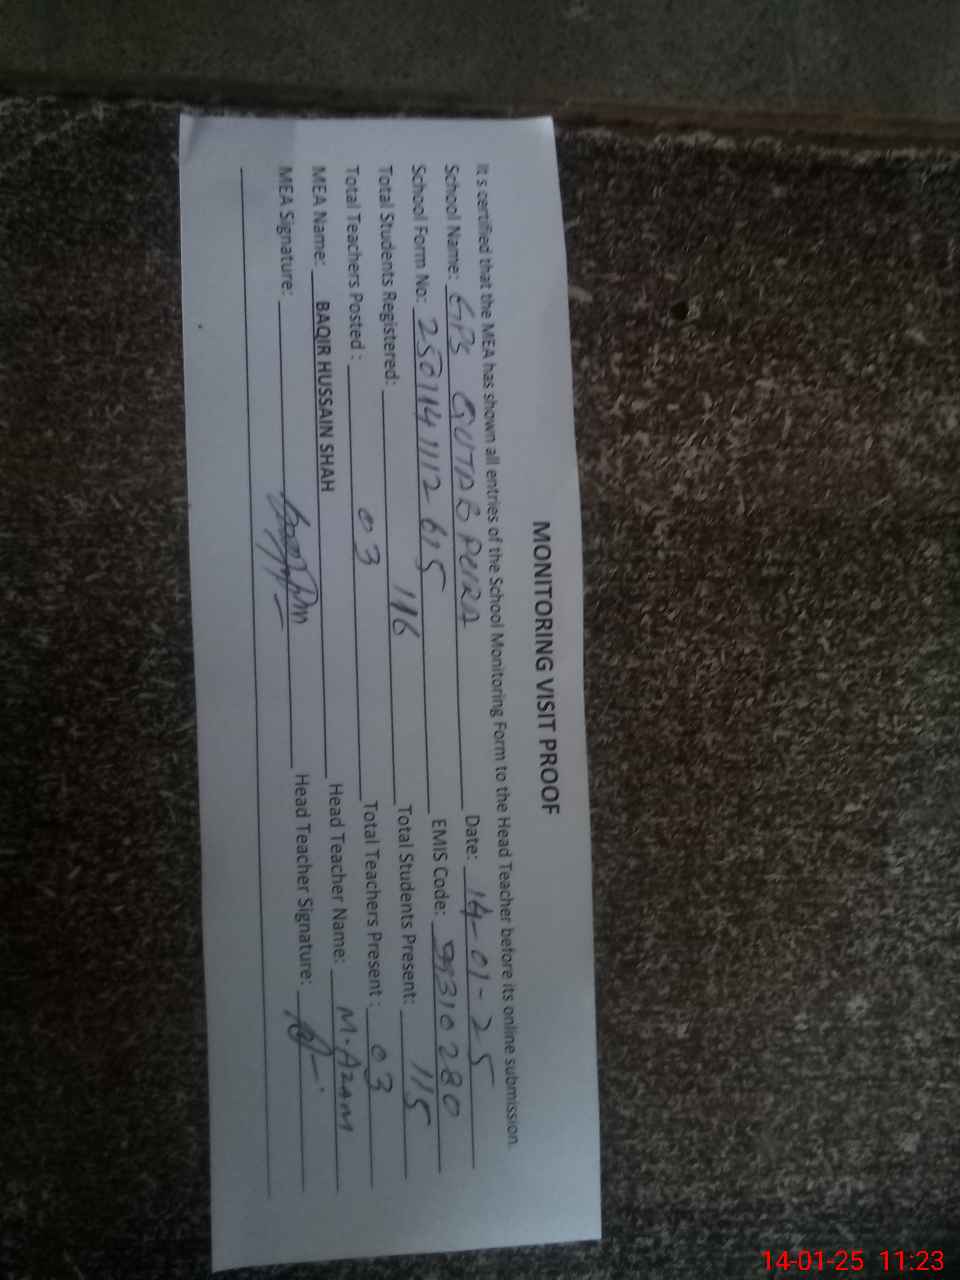 MONITORING VISIT PROOF
It s certified that the MEA has shown all entries of the School Monitoring Form to the Head Teacher before its online submission.
School Name: GPS QUTAB PUIRA Date: 14-01-25
School Form No: 2501141112615 EMIS Code: 99310280
Total Students Registered: 116 Total Students Present: 115
Total Teachers Posted : 03 Total Teachers Present : 03
MEA Name: BAQIR HUSSAIN SHAH Head Teacher Name: M. AZAM
MEA Signature: Head Teacher Signature:
14-01-25 11:23